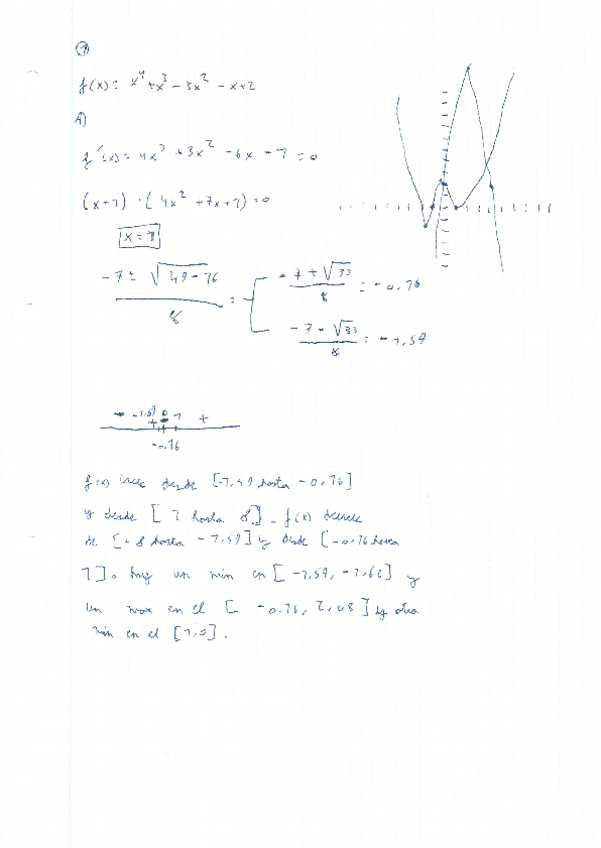 ①
f(x): x⁴ + x³ - 3x² - x + 2
A)
f'(x): 4x³ + 3x² - 6x - 1 = 0
(x-1) · (4x² + 7x + 1) = 0
x = 1
(-7 ± √(49-16)) / 8 = (-7 + √33) / 8 = -0.16
(-7 - √33) / 8 = -1,59
- -1,59 0 1 +
+ -
-0.16
f(x) crece desde [-1,59 hasta -0,16]
y desde [1 hasta 8]. f(x) decrece
de [-8 hasta -1,59] y desde [-0.16 hasta
1]. hay un min en [-1,59, -1,62] y
un max en el [-0.16, 2,08] y otro
min en el [1,0].